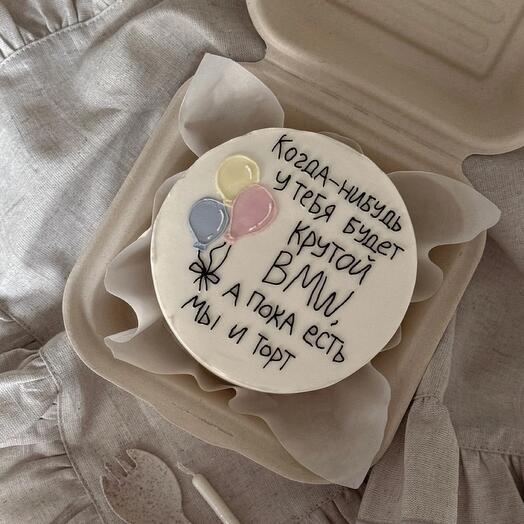 Когда-нибудь
у тебя будет
крутой
BMW,
а пока есть
мы и торт